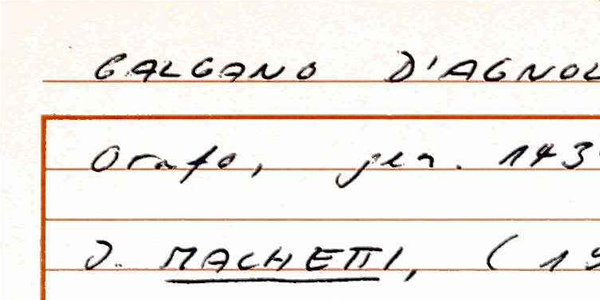 GALGANO D'AGNOL
Orafo, gen. 143
J. MACHETTI, (19